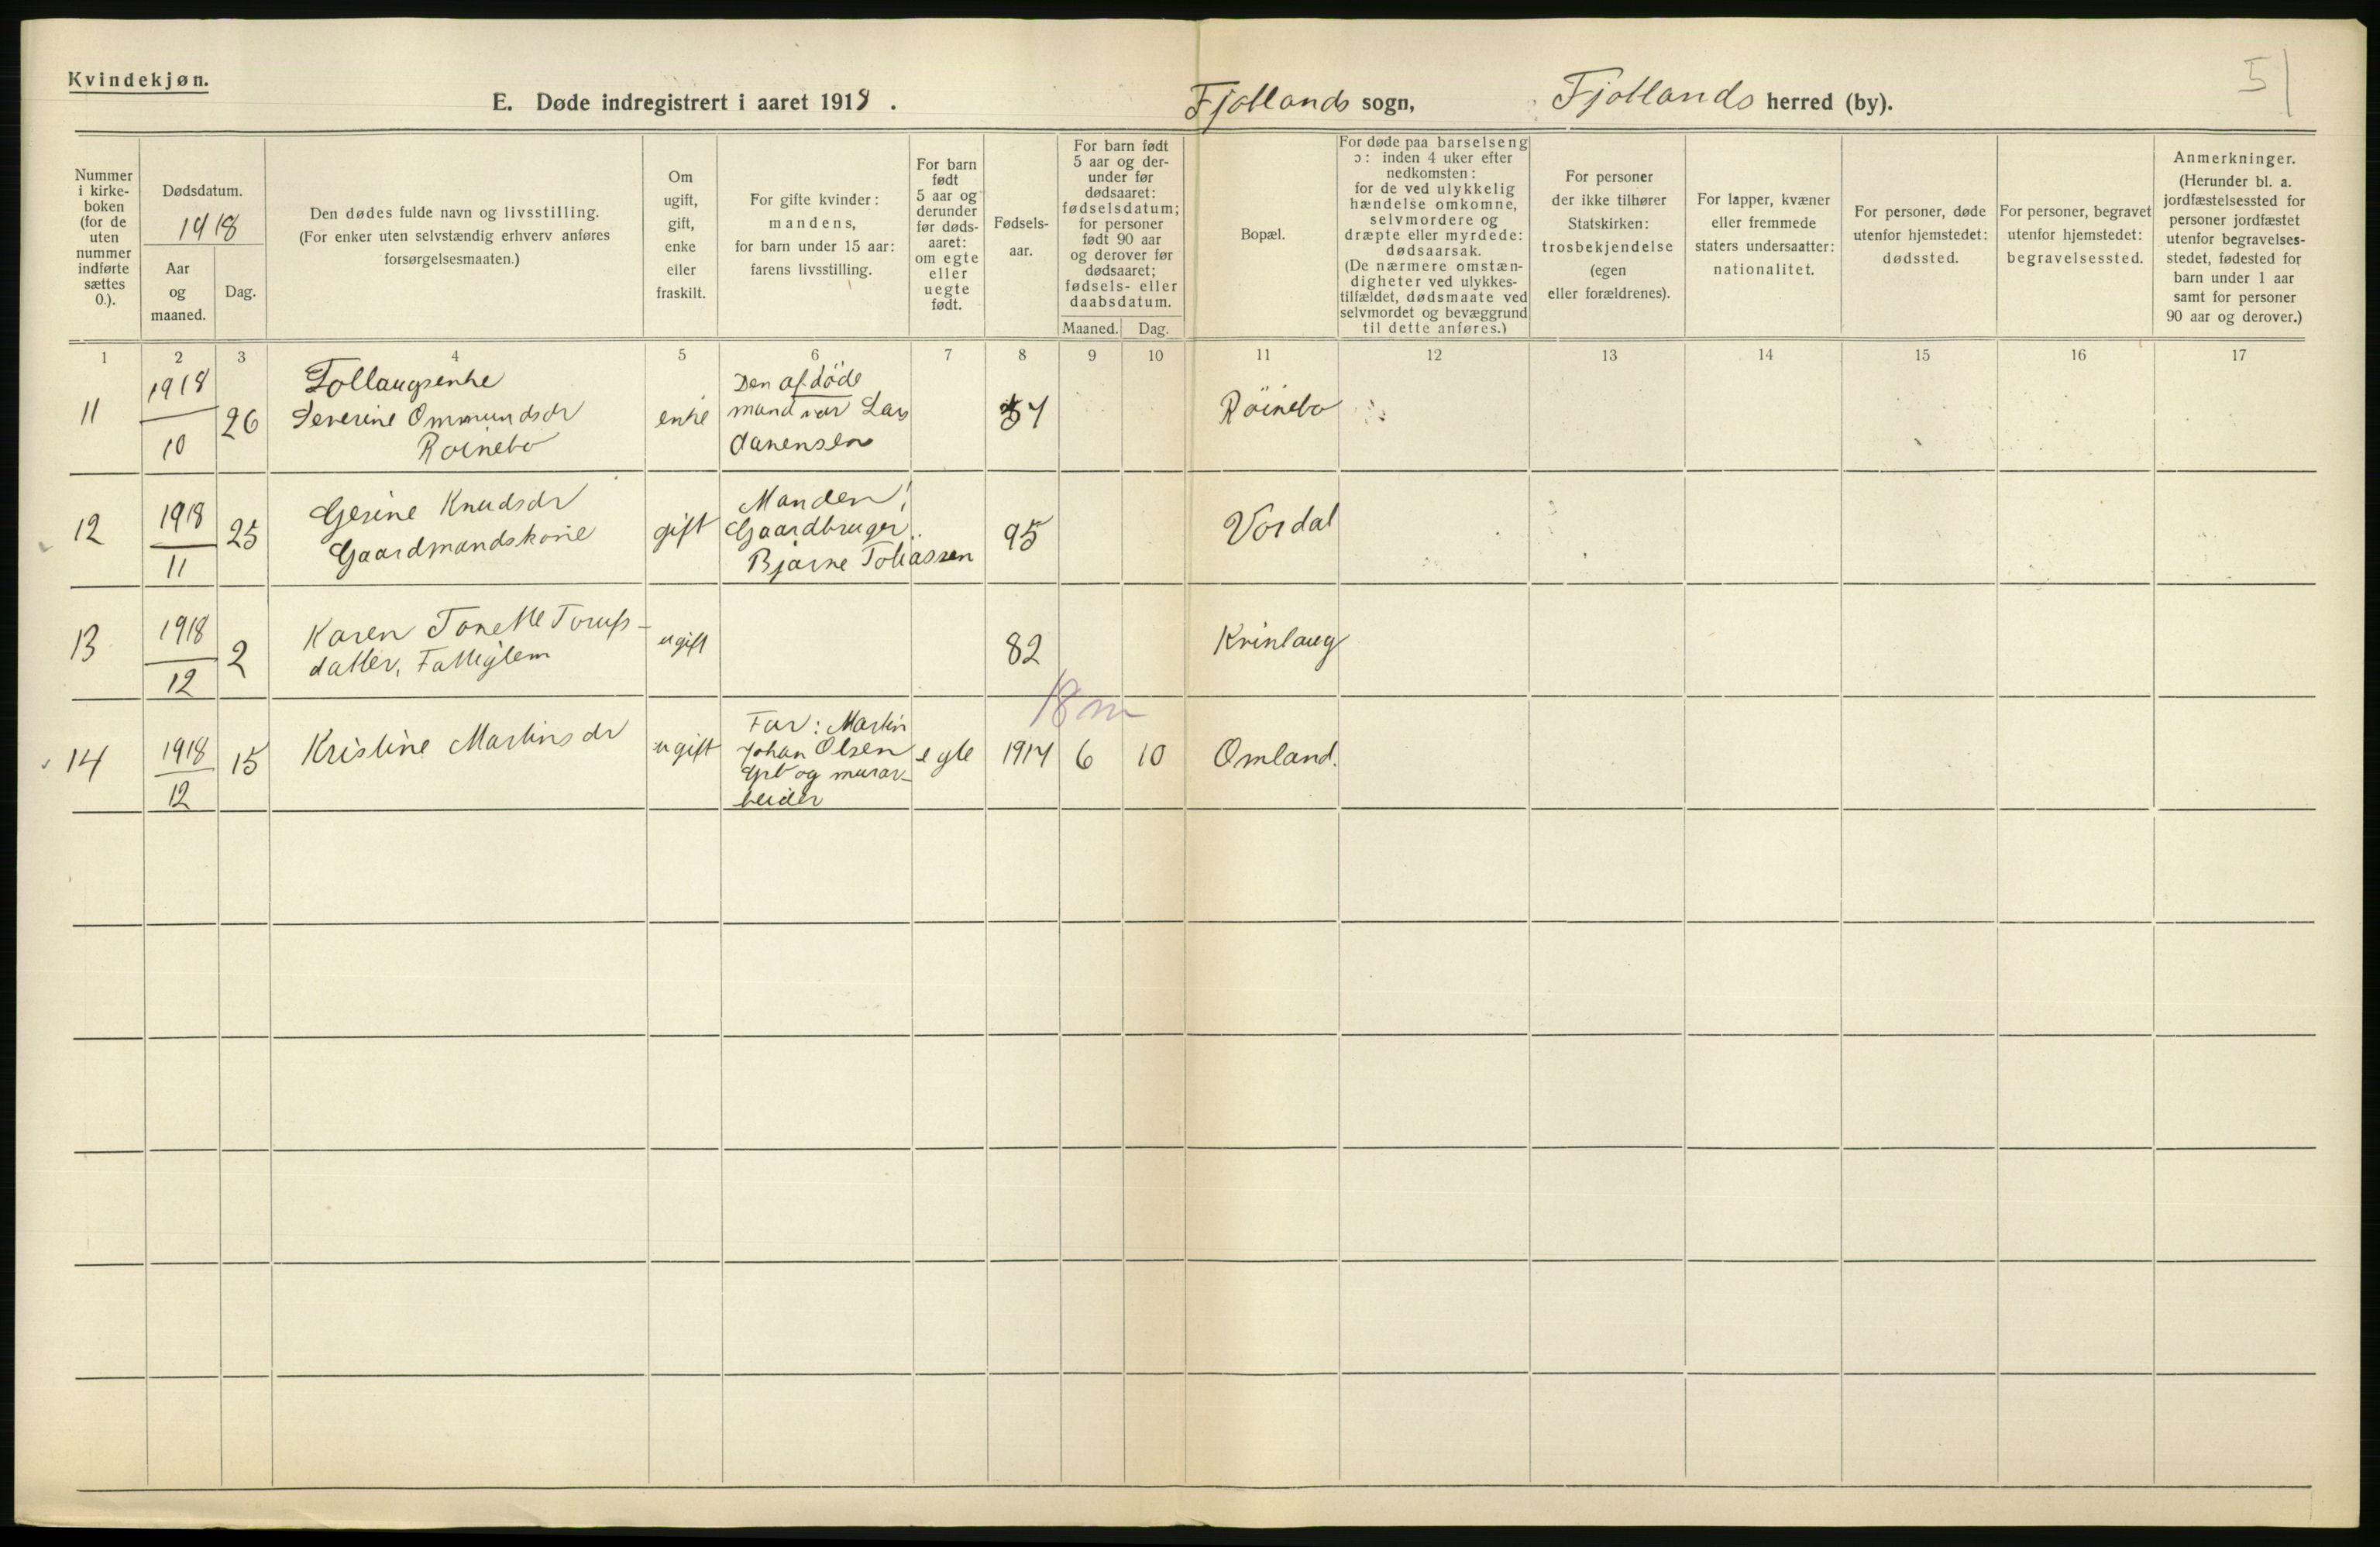 Kvindekjøn.
51
E. Døde indregistrert i aaret 1918. Fjotlands sogn, Fjotlands herred (by).
Nummer i kirke-boken (for de uten nummer indførte sættes 0.).
Dødsdatum.
1918
Aar og maaned.
Dag.
Den dødes fulde navn og livsstilling.
(For enker uten selvstændig erhverv anføres
forsørgelsesmaaten.)
Om ugift, gift, enke eller fraskilt.
For gifte kvinder:
mandens,
for barn under 15 aar:
farens livsstilling.
For barn født 5 aar og derunder før døds-aaret: om egte eller uegte født.
Fødsels-aar.
For barn født 5 aar og der-under før dødsaaret: fødselsdatum; for personer født 90 aar og derover før dødsaaret; fødsels- eller daabsdatum.
Maaned. Dag.
Bopæl.
For døde paa barselseng
ɔ: inden 4 uker efter
nedkomsten:
for de ved ulykkelig
hændelse omkomne,
selvmordere og
dræpte eller myrdede:
dødsaarsak.
(De nærmere omstæn-
digheter ved ulykkes-
tilfældet, dødsmaate ved
selvmordet og bevæggrund
til dette anføres.)
For personer
der ikke tilhører
Statskirken:
trosbekjendelse
(egen
eller forældrenes).
For lapper, kvæner
eller fremmede
staters undersaatter:
nationalitet.
For personer, døde
utenfor hjemstedet:
dødssted.
For personer, begravet
utenfor hjemstedet:
begravelsessted.
Anmerkninger.
(Herunder bl. a.
jordfæstelsessted for
personer jordfæstet
utenfor begravelses-
stedet, fødested for
barn under 1 aar
samt for personer
90 aar og derover.)
1 2 3 4 5 6 7 8 9 10 11 12 13 14 15 16 17
11 1918/10 26
Severine Ommundsdr
Roinebo
enke
Den afdöde
mand var Lars
57 Röinebo
12 1918/11 25
Gesine Knudsdr
Gaardmandskone
gift
Manden!
Gaardbruger
Bjarne Tobiassen
95 Vordal
13 1918/12 2
Karen Tonette
datter, Fattiglem
ugift 82 Kvinlaug
18 m
14 1918/12 15
Kristine Martinsdr
ugift
Far: Martin
Johan Olsen
Grb og murar-
beider
egte 1917 6 10 Omland.